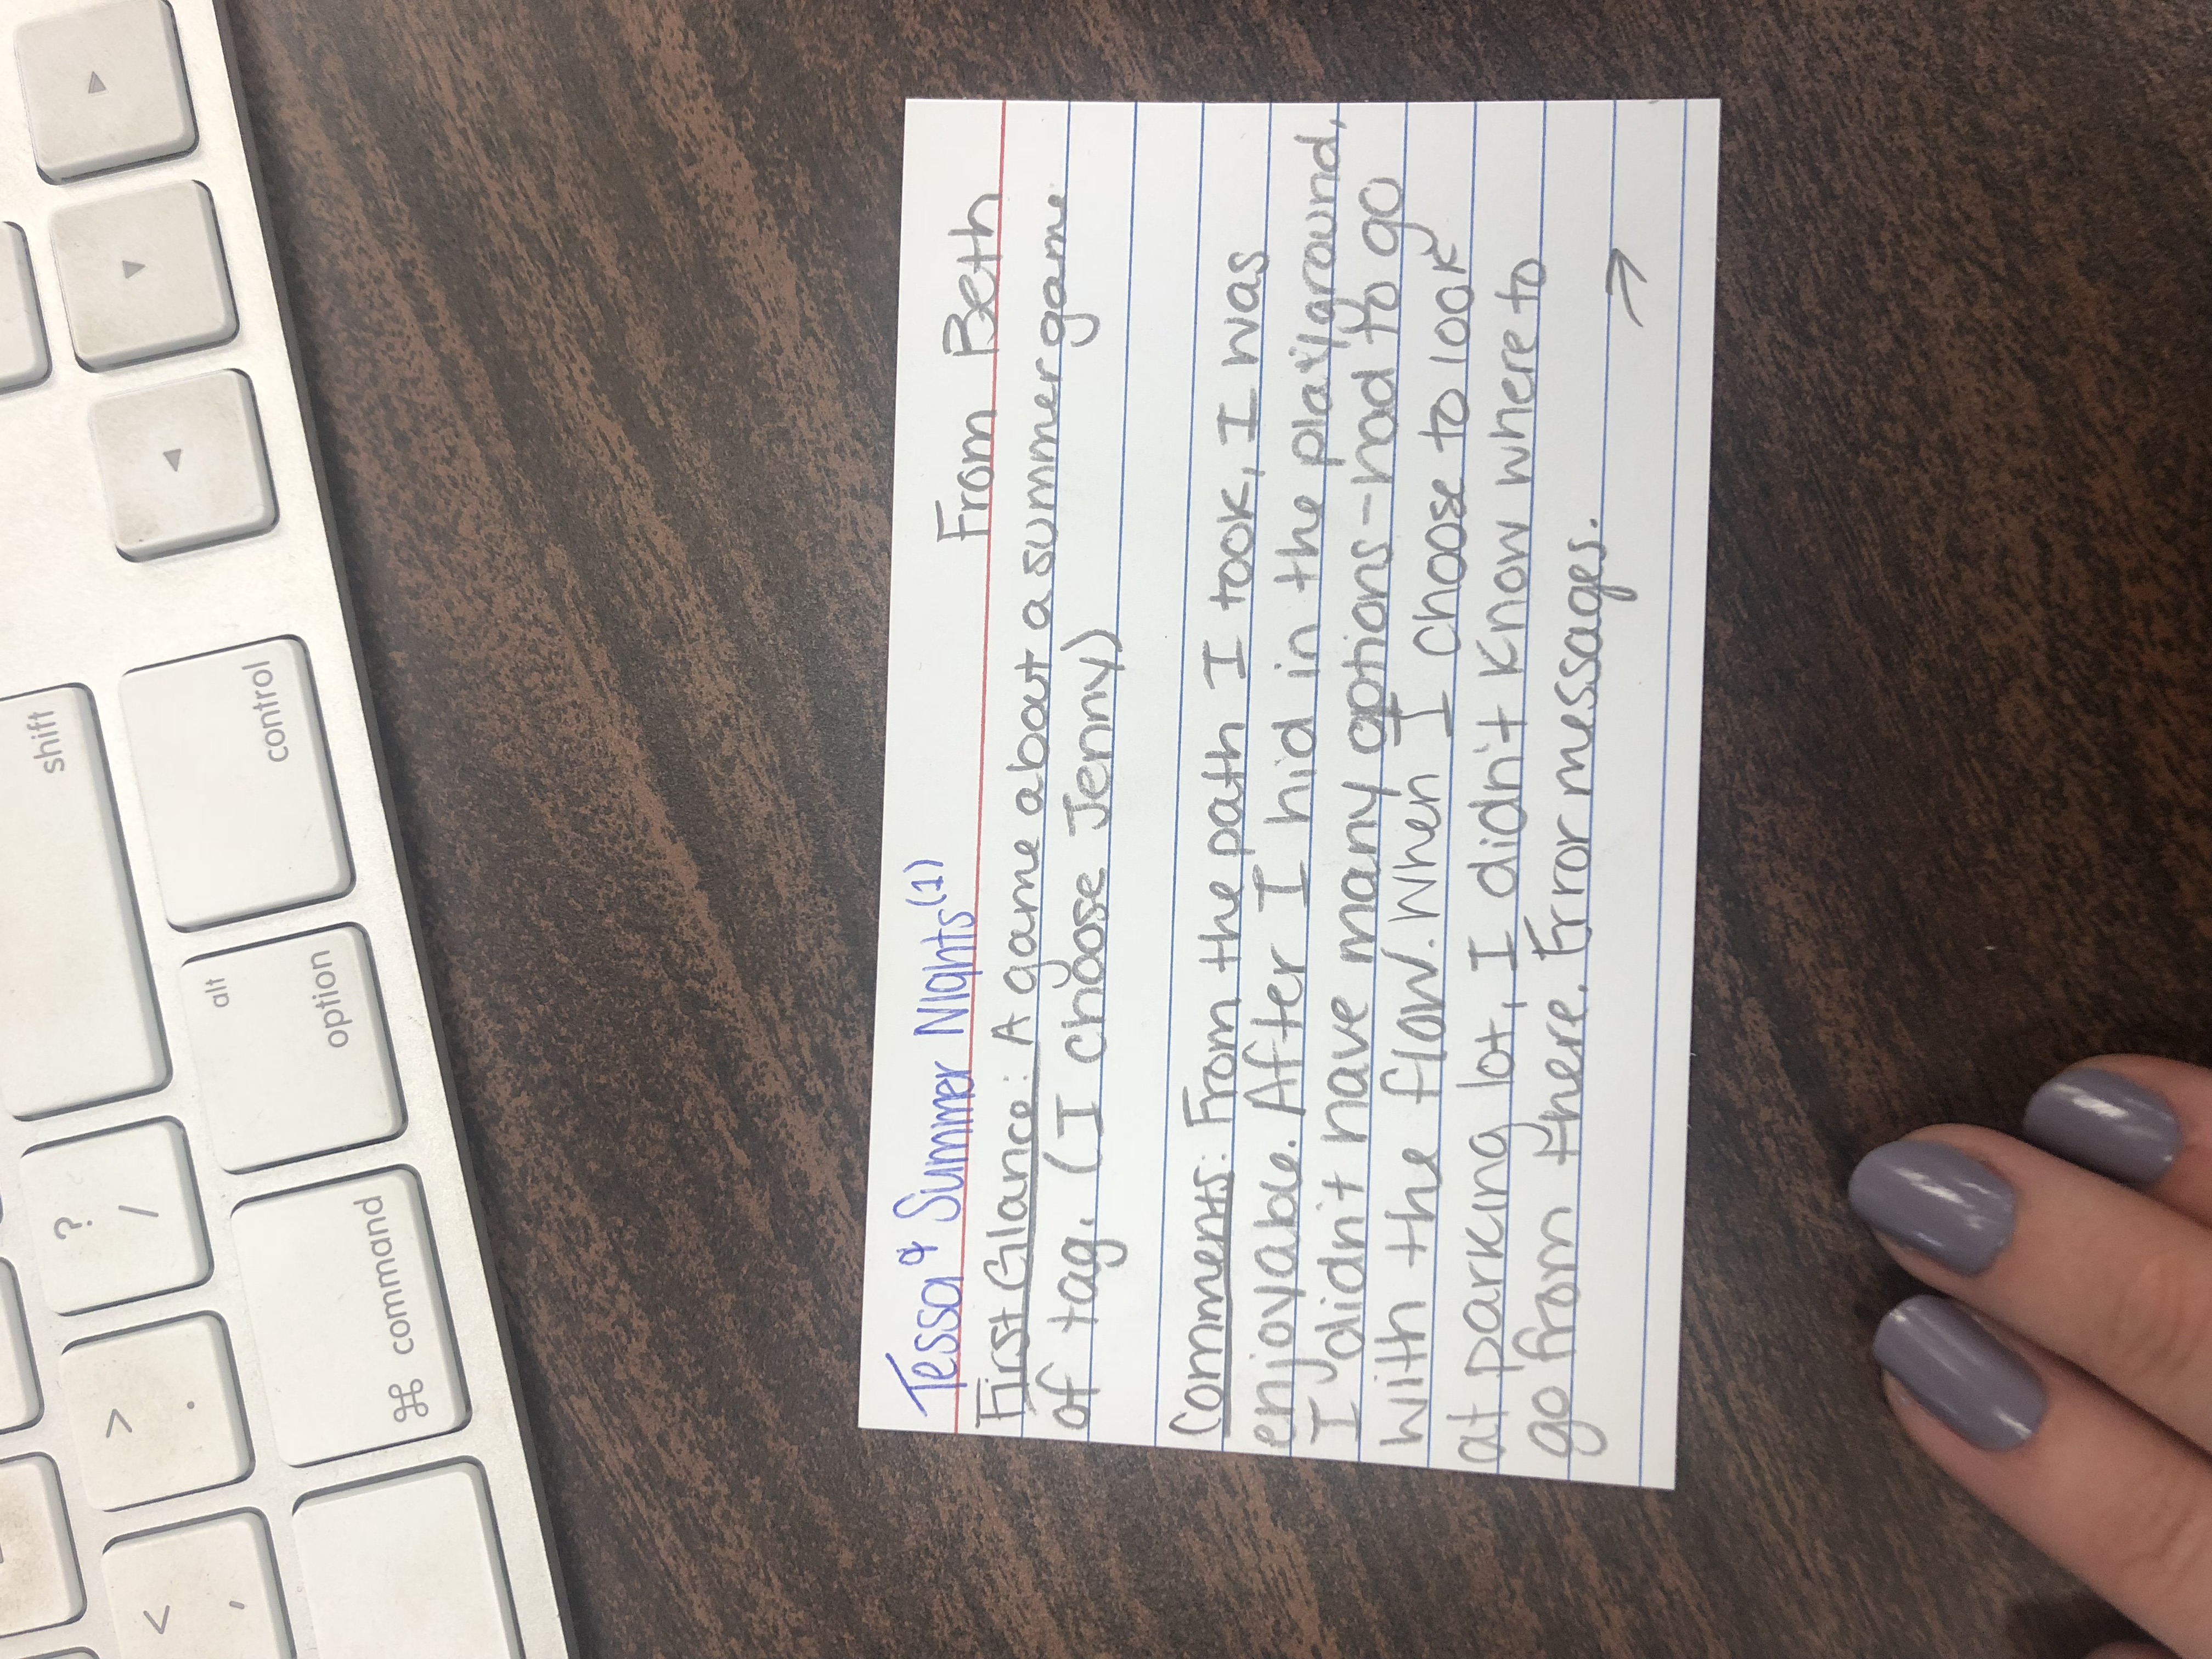 shift
?
/
>
.
<
,
alt
option
control
⌘ command
◄
▼
►
Tessa & Summer Nights (1)
From Beth
First Glance: A game about a summer game
of tag. (I choose Jenny)
Comments: From the path I took, I was
enjoyable. After I hid in the playground,
I didn't have many options - had to go
with the flow. When I choose to look
at parking lot, I didn't know where to
go from there. Error messages.
→